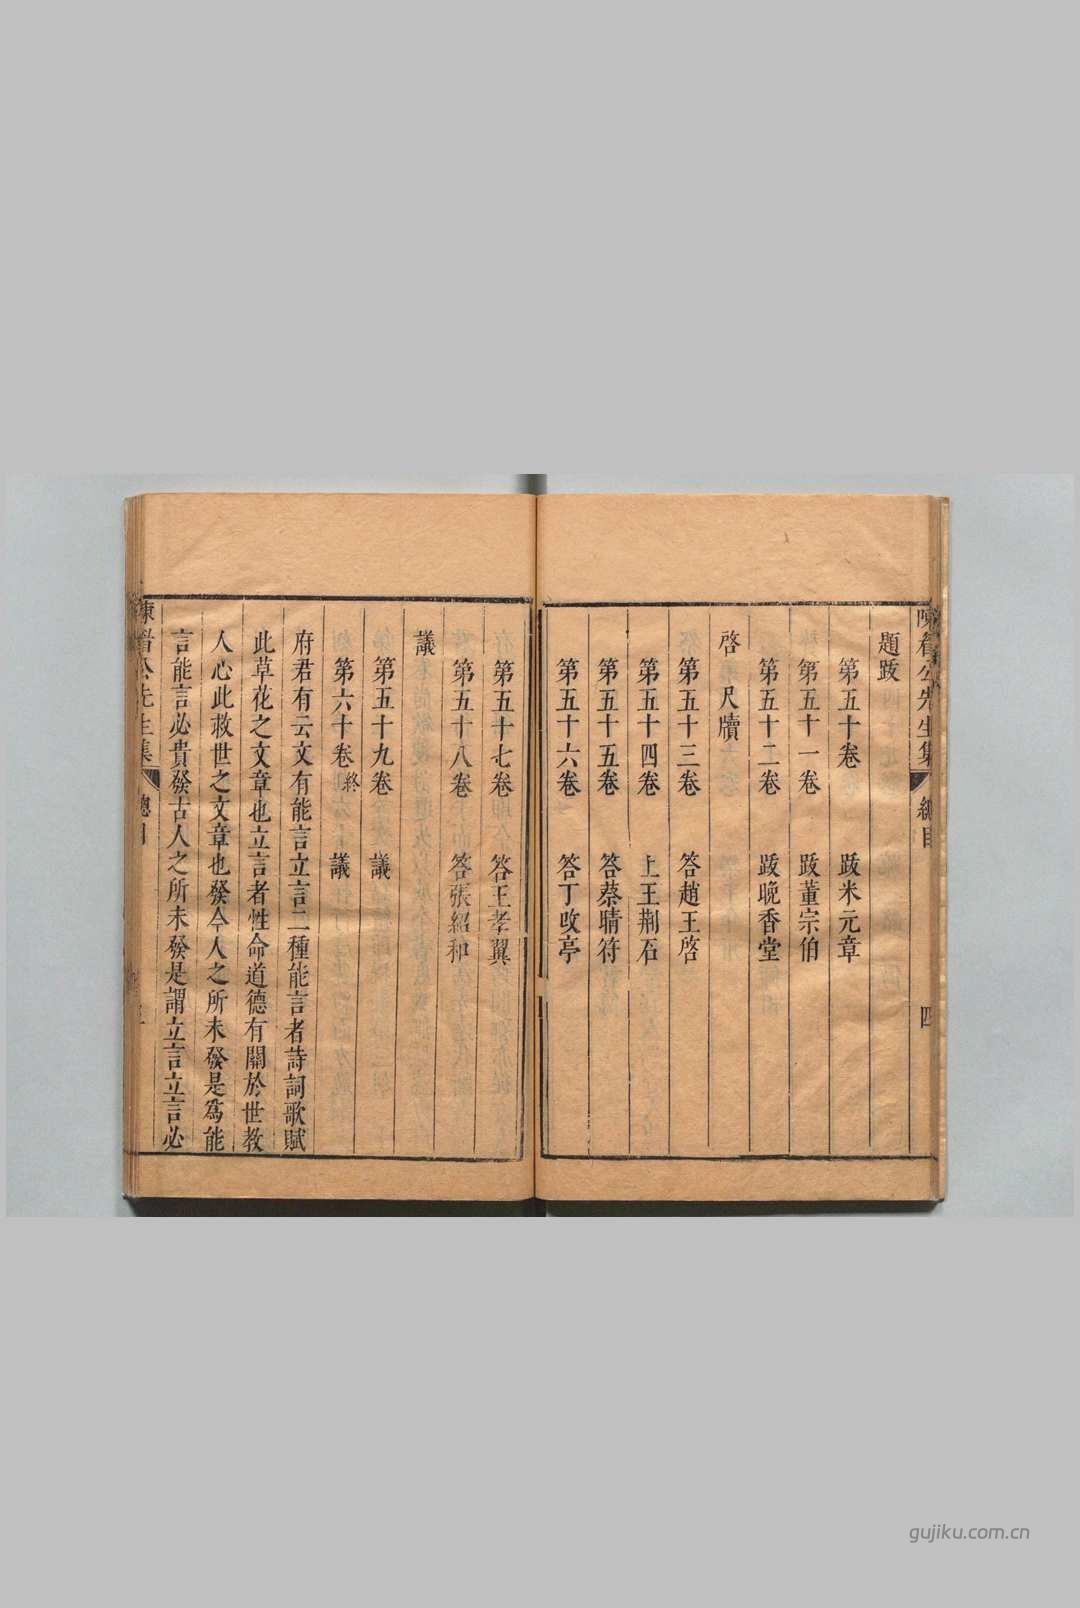 陳眉公先生集 總目 四
題跋
第五十卷 跋米元章
第五十一卷 跋董宗伯
第五十二卷 跋晚香堂
啓 尺牘
第五十三卷 答趙王啓
第五十四卷 上王荆石
第五十五卷 答蔡晴符
第五十六卷 答丁改亭
第五十七卷 答王孝翼
第五十八卷 答張紹和
議
第五十九卷 議
第六十卷終 議
府君有云文有能言立言二種能言者詩詞歌賦
此草花之文章也立言者性命道德有關於世教
人心此救世之文章也發今人之所未發是爲能
言能言必貴發古人之所未發是謂立言立言必
陳眉公先生集 總目
gujiku.com.cn